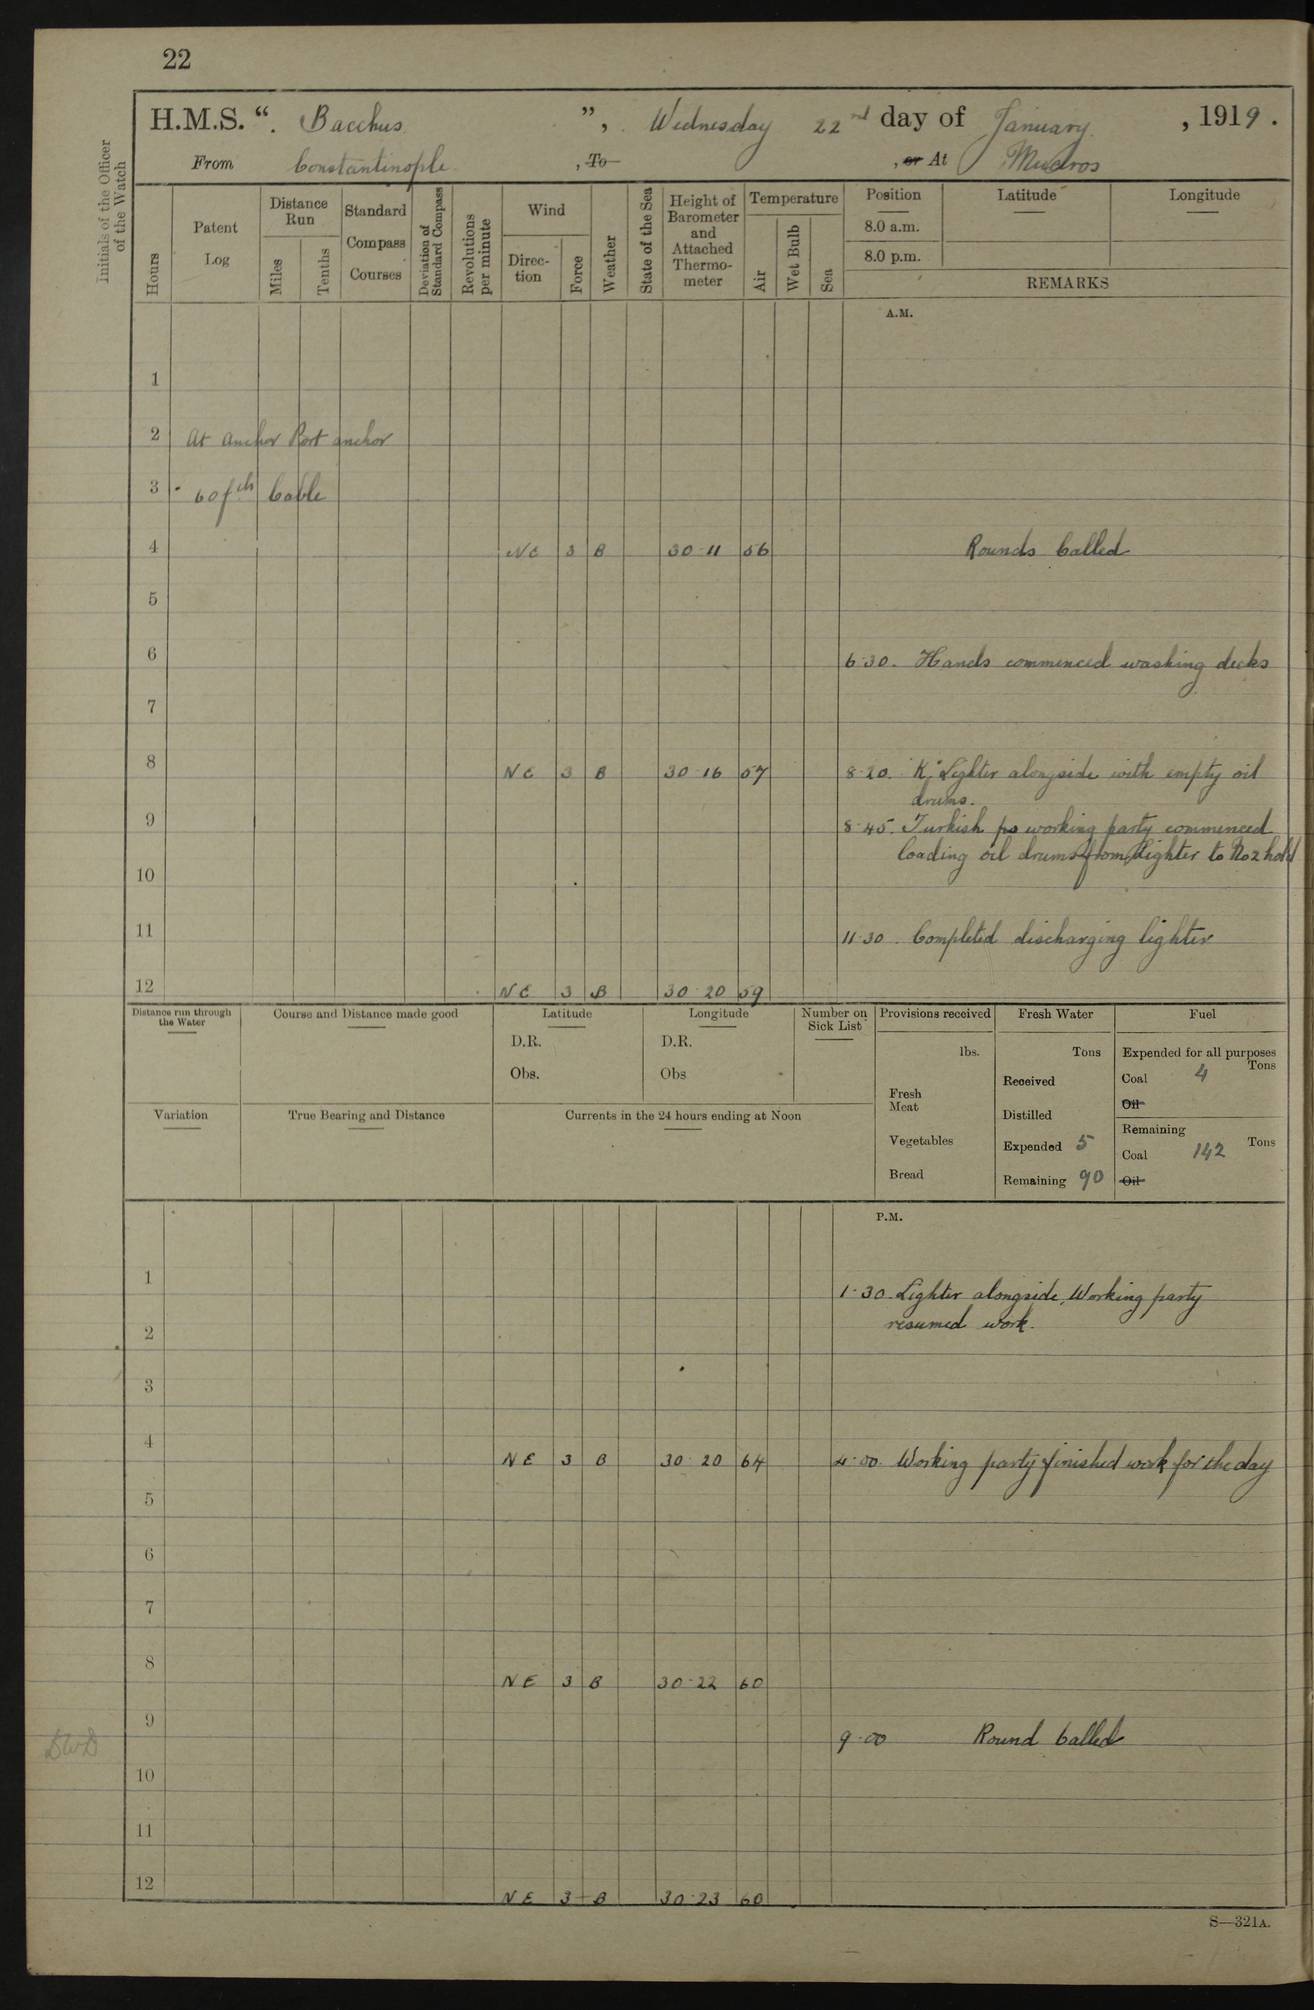 22
H.M.S. “ Bacchus ”, Wednesday 22nd day of January, 1919.
From Constantinople, To , or At Mudros
Initials of the Officer of the Watch
Hours
Patent Log
Distance Run
Miles
Tenths
Standard Compass Courses
Deviation of Standard Compass
Revolutions per minute
Wind
Direc-tion
Force
Weather
State of the Sea
Height of Barometer and Attached Thermo-meter
Temperature
Air
Wet Bulb
Sea
Position
Latitude
Longitude
8.0 a.m.
8.0 p.m.
REMARKS
A.M.
1
2 At anchor Port anchor
3 60 fth Cable
4 NE 3 B 30·11 56 Rounds Called
5
6 6·30. Hands commenced washing decks
7
8 NE 3 B 30·16 57 8·20. "K" Lighter alongside with empty oil
drums.
9 8·45. Turkish po working party commenced
loading oil drums from Lighter to No 2 hold
10
11 11·30. Completed discharging lighter
12 NE 3 B 30·20 59
Distance run through the Water
Course and Distance made good
Latitude
D.R.
Obs.
Longitude
D.R.
Obs
Number on Sick List
Provisions received
lbs.
Fresh Meat
Vegetables
Bread
Fresh Water
Tons
Received
Distilled
Expended 5
Remaining 90
Fuel
Expended for all purposes
Tons
Coal 4
Oil
Remaining
Tons
Coal 142
Oil
Variation
True Bearing and Distance
Currents in the 24 hours ending at Noon
P.M.
1 1·30. Lighter alongside, Working party
resumed work.
2
3
4 NE 3 B 30·20 64 4·00. Working party finished work for the day
5
6
7
8 NE 3 B 30·22 60
9 9·00 Round Called
10
11
12 NE 3 B 30·23 60
S—321A.